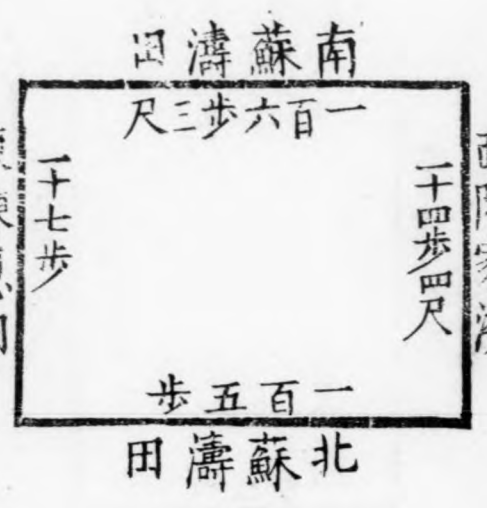 南蘇濤田
一百六步三尺
一十四步四尺
一十七步
一百五步
北蘇濤田